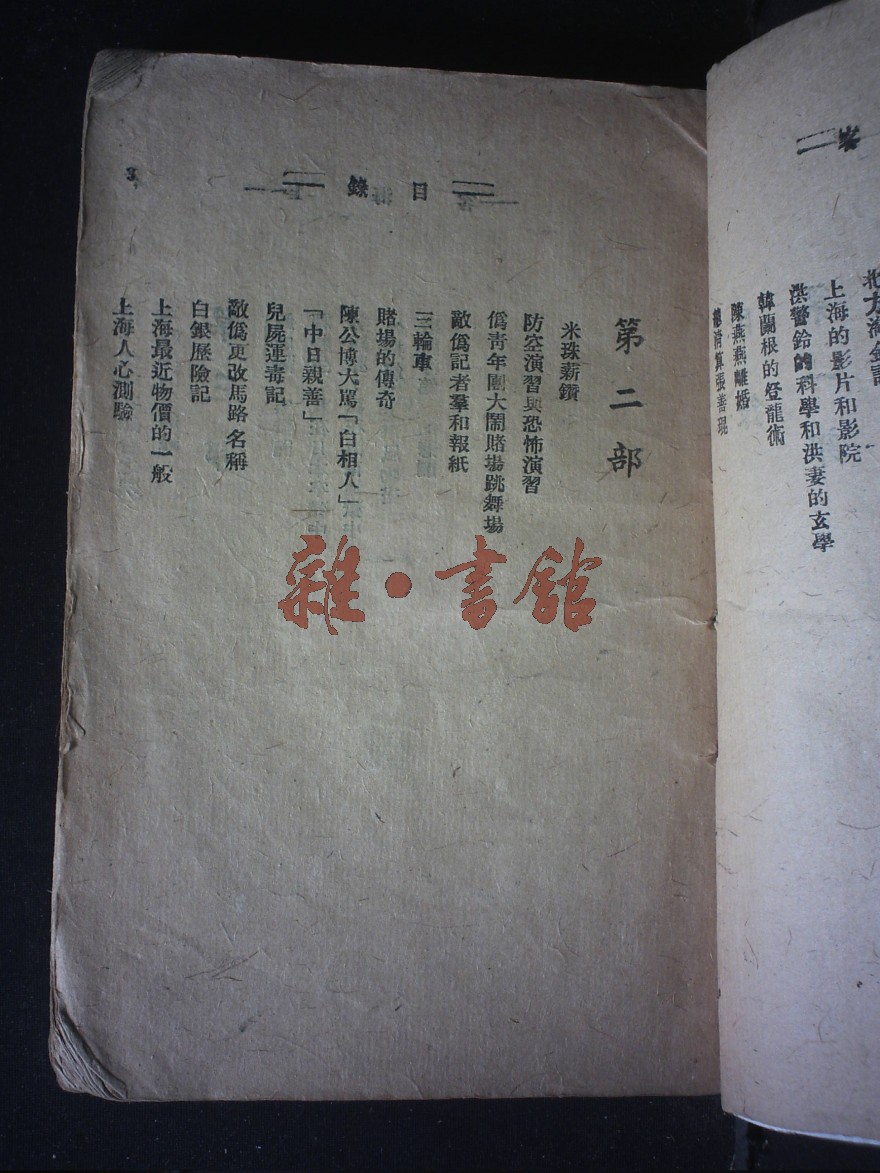 上海的影片和影院
洪警鈴的科學和洪妻的玄學
韓蘭根的登龍術
陳燕燕離婚
總清算張善琨
目錄
3
第二部
米珠薪鑽
防空演習與恐怖演習
僞靑年團大鬧賭場跳舞場
敵僞記者羣和報紙
三輪車
賭場的傳奇
陳公博大罵「白相人」
「中日親善」
兒屍運毒記
敵僞更改馬路名稱
白銀歷險記
上海最近物價的一般
上海人心測驗
雜·書館